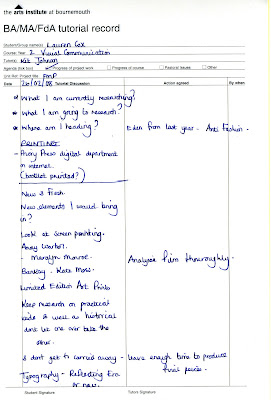 the arts institute at bournemouth
BA/MA/FdA tutorial record
Student/Group name(s) Lauren Cox
Course/Year 2 Visual Communication
Tutor(s)
Agenda (tick box) Progress of project work Progress of course Pastoral issues Other
Unit Ref: Project title PMP
Date 20/02/08 Tutorial Discussion Action agreed By when
* What I am currently researching?
* What am I going to research?
* Where am I heading? Idea from last year. Anti Fashion.
PRINTING:
- Press digital department
on internet.
(booklet printed?)
New & Fresh.
New elements I would bring
in?
Look at screen printing.
Andy Warhol.
- Marylyn Monroe. Analyse him thouroughly.
Banksy. Kate Moss.
Limited Edition Art Prints
Keep research on practical
side & well a historical
dont let one over take the
other.
& dont get to carried away - leave enough time to produce
final peice.
Typography - Reflecting Era
or new.
Student Signature Tutor Signature